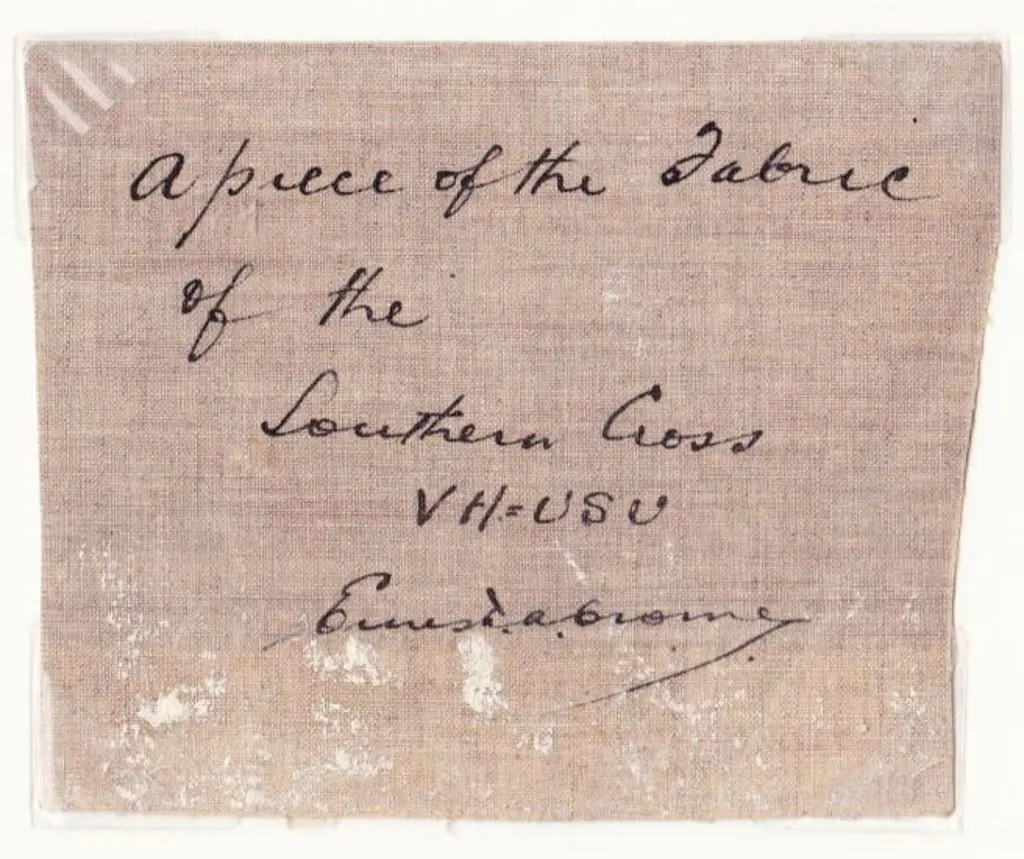 A piece of the Fabric
of the
Southern Cross
VH=USU
Ernest.A.Crome